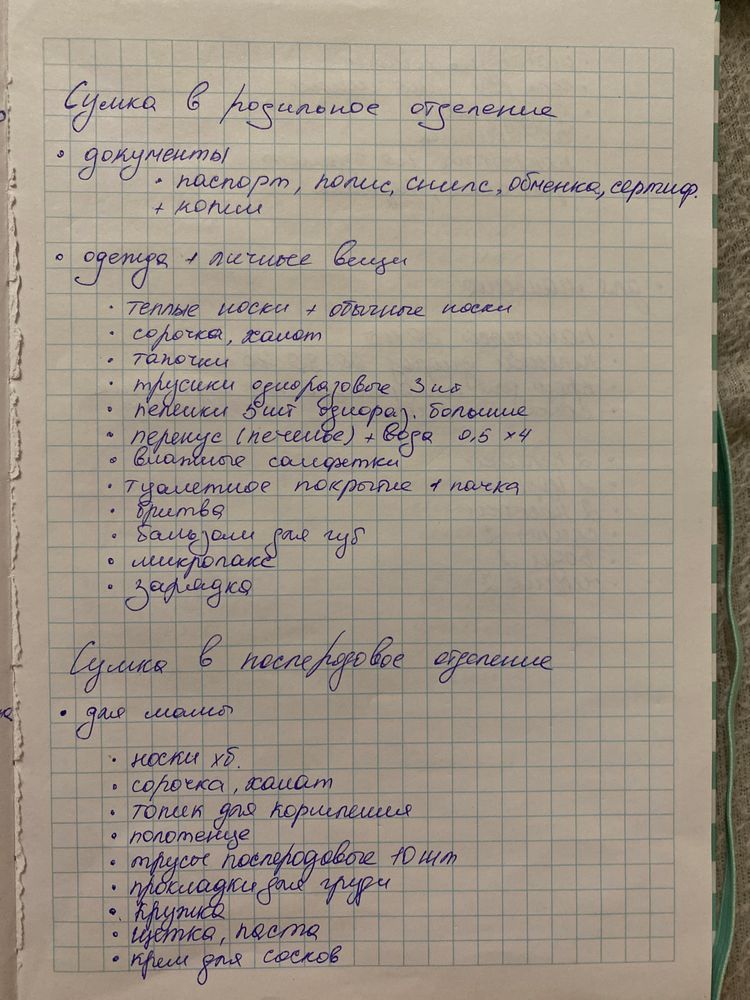 Сумка в родильное отделение
• документы
• паспорт, полис, снилс, обменка, сертиф.
+ копии
• одежда + личные вещи
• теплые носки + обычные носки
• сорочка, халат
• тапочки
• трусики одноразовые 3 шт
• пеленки 5 шт однораз. большие
• перекус (печенье) + вода 0,5 х4
• влажные салфетки
• туалетное покрытие 1 пачка
• бритва
• бальзам для губ
• микролакс
• зарядка
Сумка в послеродовое отделение
• для мамы
• носки хб.
• сорочка, халат
• топик для кормления
• полотенце
• трусы послеродовые 10 шт
• прокладки для груди
• кружка
• щетка, паста
• крем для сосков